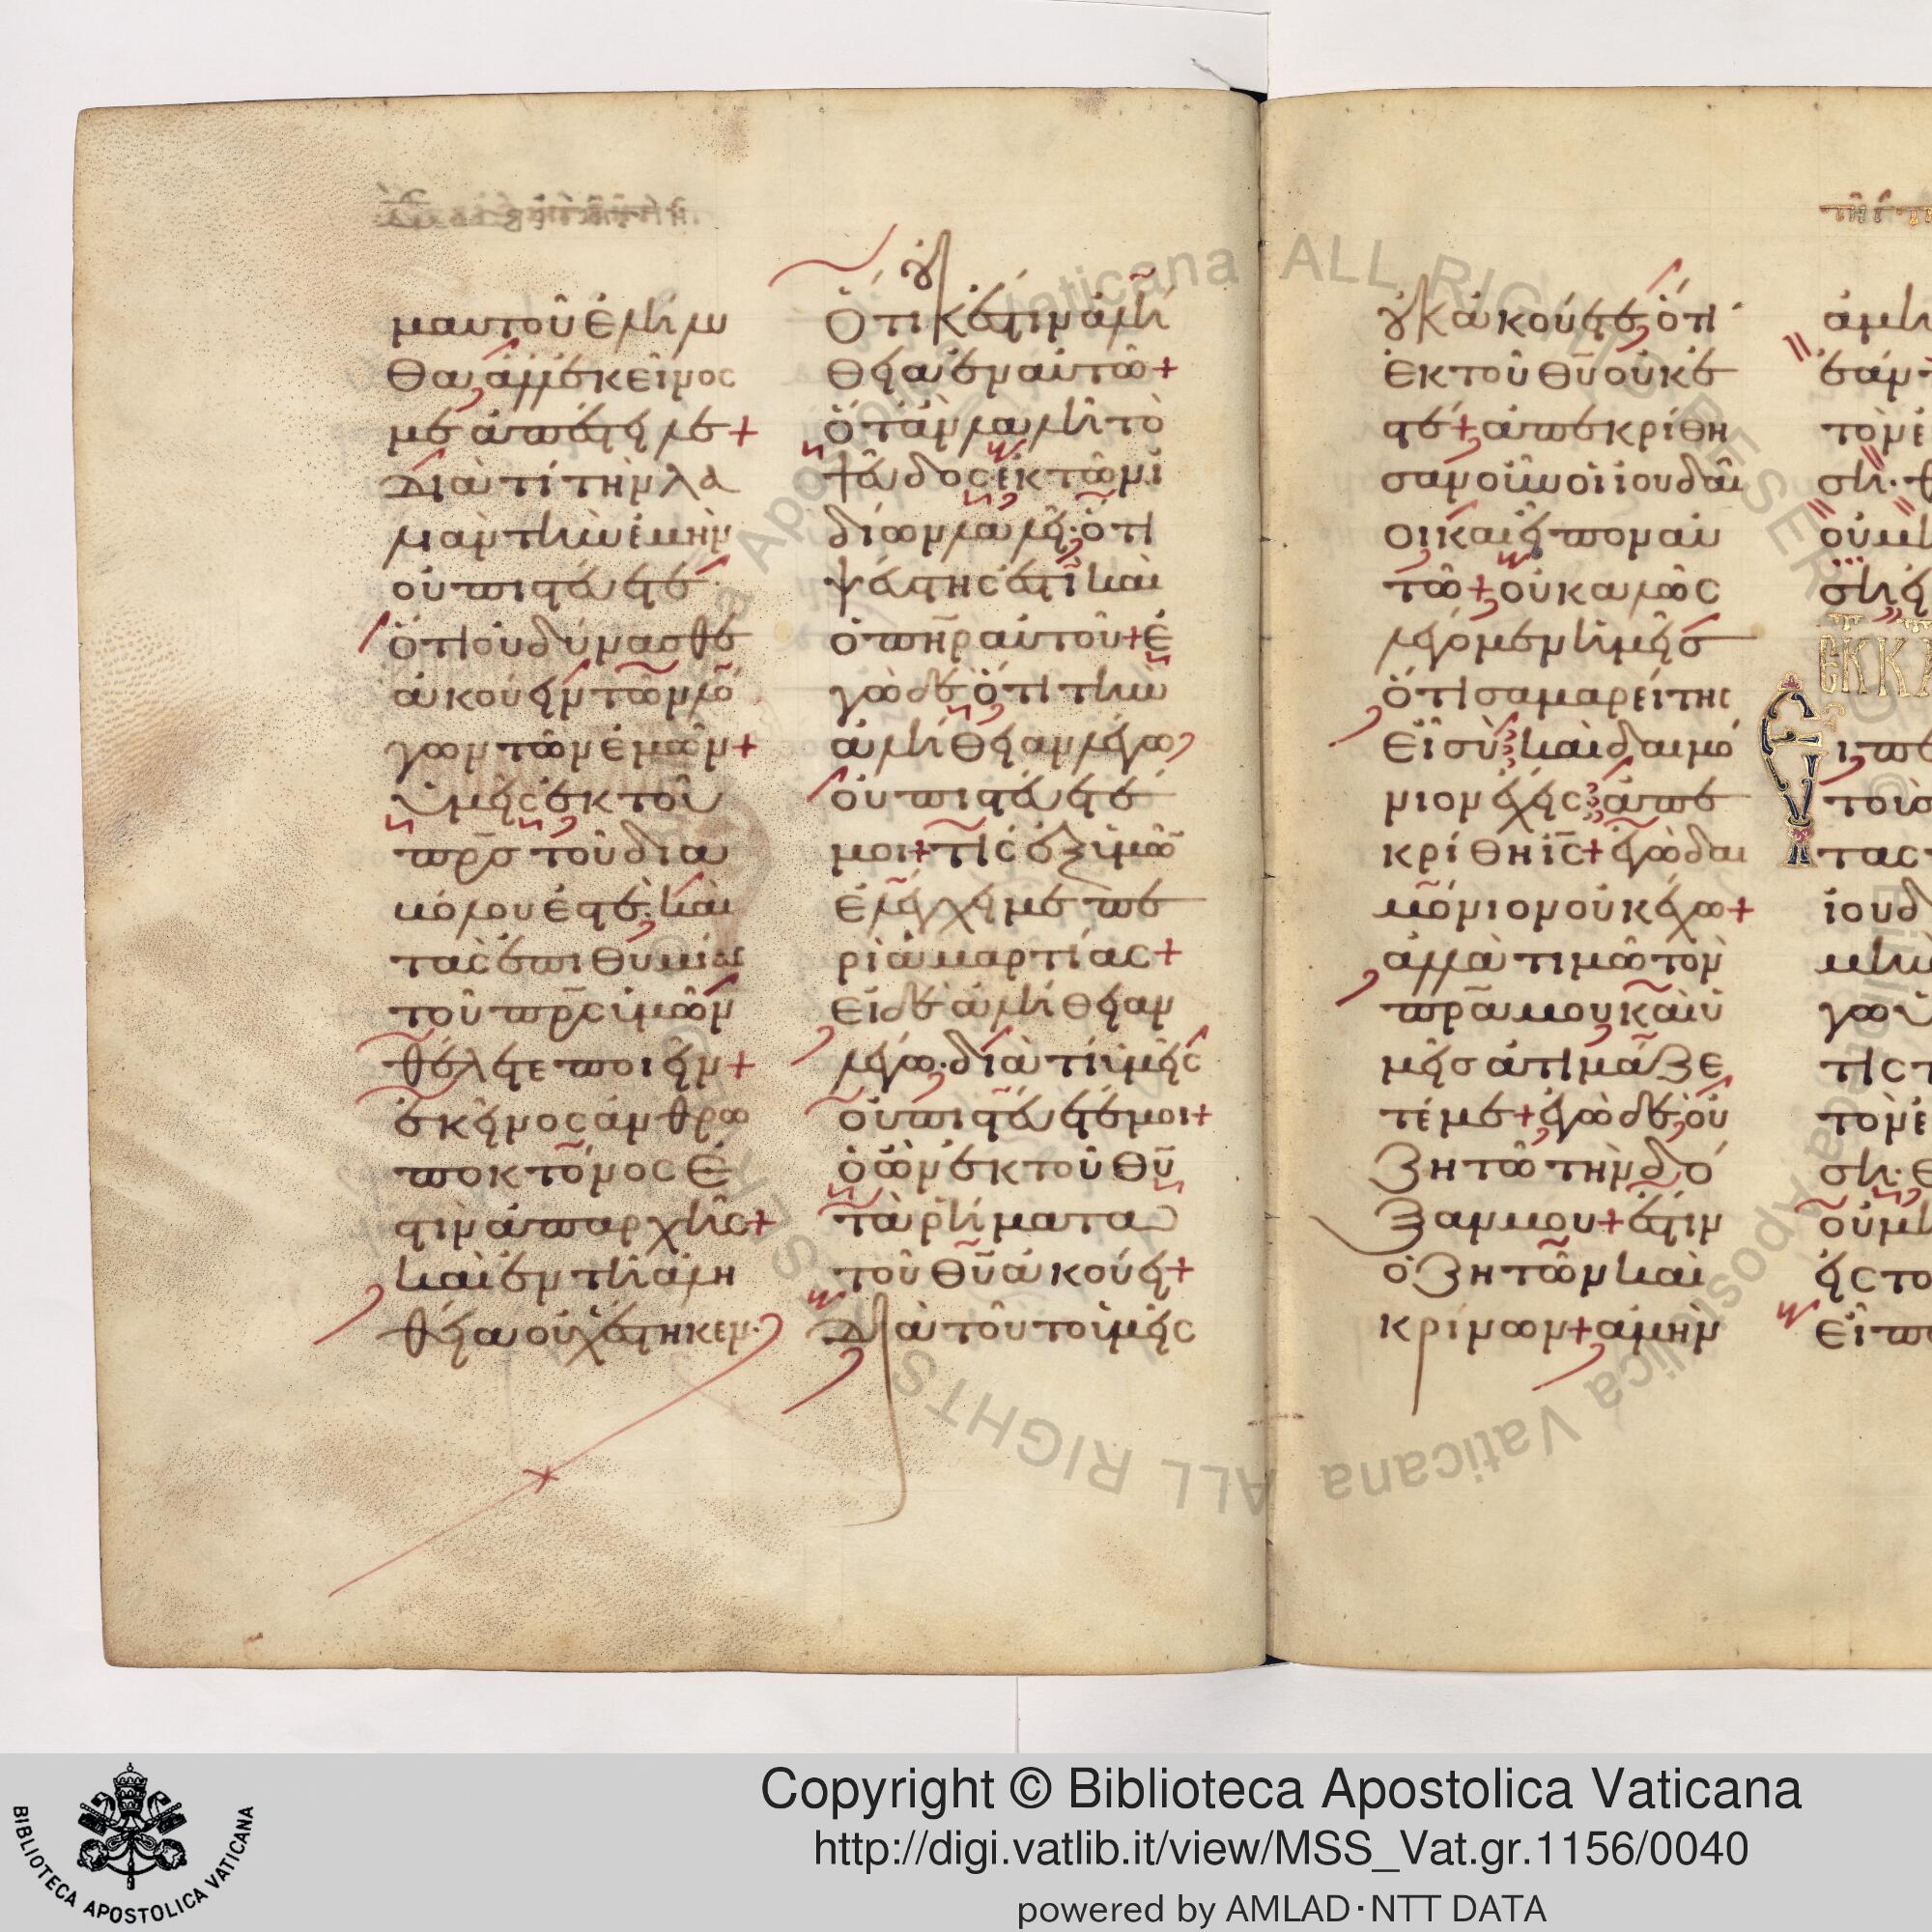 μαυτοῦ ἐλήλυ
θα ἀλλ' ἐκεῖνος
με ἀπέστειλε+
Διατί τὴν λα
λιὰν τὴν ἐμὴν
οὐ πιστεύετε·
ὅτι οὐ δύνασθε
ἀκούειν τῶν λό
γων τῶν ἐμῶν+
ὑμεῖς ἐκ τοῦ
πρ̅ς τοῦ δια
βόλου ἐστέ· καὶ
τὰς ἐπιθυμίας
τοῦ πρ̅ς ὑμῶν
θέλετε ποιεῖν+
ἐκεῖνος ἀνθρω
ποκτόνος ἐ
στιν ἀπαρχῆς+
καὶ ἐν τῆ ἀλη
θεία οὐχ ἕστηκεν·
Ὅτι οὐκ ἔστιν ἀλή
θεια ἐν αὐτῶ+
ὅταν λαλῆ τὸ
ψεῦδος ἐκ τῶν ἰ
δίων λαλεῖ· ὅτι
ψεύστης ἐστὶ καὶ
ὁ πη̅ρ αὐτοῦ+ ἐ
γὼ δὲ ὅτι τὴν
ἀλήθειαν λέγω
οὐ πιστεύετέ
μοι+ τίς ἐξ ὑμῶν
ἐλέγχει με πε
ρὶ ἁμαρτίας+
εἰ δὲ ἀλήθειαν
λέγω· διατί ὑμεῖς
οὐ πιστεύετέ μοι+
ὁ ὢν ἐκ τοῦ θυ̅
τὰ ῥήματα
τοῦ θυ̅ ἀκούει+
Διὰ τοῦτο ὑμεῖς
οὐκ ἀκούετε, ὅτι
ἐκ τοῦ θυ̅ οὐκ ἐ
στέ+ ἀπεκρίθη
σαν οὖν οἱ ἰουδαῖ
οι καὶ εἶπον αὐ
τῶ+ οὐ καλῶς
λέγομεν ἡμεῖς
ὅτι σαμαρείτης
εἶ σὺ καὶ δαιμό
νιον ἔχεις ἀπε
κρίθη ις̅+ ἐγὼ δαι
μόνιον οὐκ ἔχω+
ἀλλὰ τιμῶ τὸν
πρ̅α μου καὶ ὑ
μεῖς ἀτιμάζε
τέ με+ ἐγὼ δὲ οὐ
ζητῶ τὴν δό
ξαν μου+ ἔστιν
ὁ ζητῶν καὶ
κρίνων+ ἀμὴν
ἀμὴ
ἐάν
τὸν ἐ
ση·
οὐ μὴ
ΕΚΚΛ
τοῖς
τας
ἰουδ
μὴν
γω
τις
τὸν ἐ
ση·
οὐ μὴ
εἰς το
Εἶπο
Copyright © Biblioteca Apostolica Vaticana
http://digi.vatlib.it/view/MSS_Vat.gr.1156/0040
powered by AMLAD·NTT DATA
BIBLIOTECA APOSTOLICA VATICANA